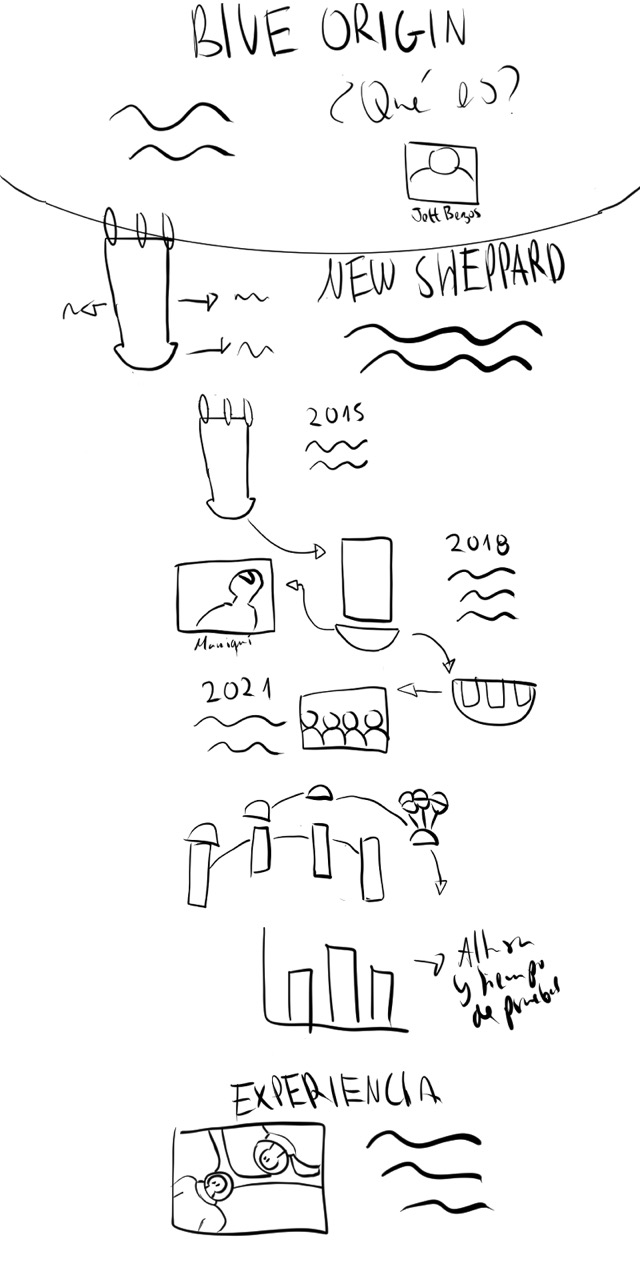 BLUE ORIGIN
¿Qué es?
Jeff Bezos
NEW SHEPPARD
2015
2018
Maniquí
2021
Altura
y tiempo
de pruebas
EXPERIENCIA